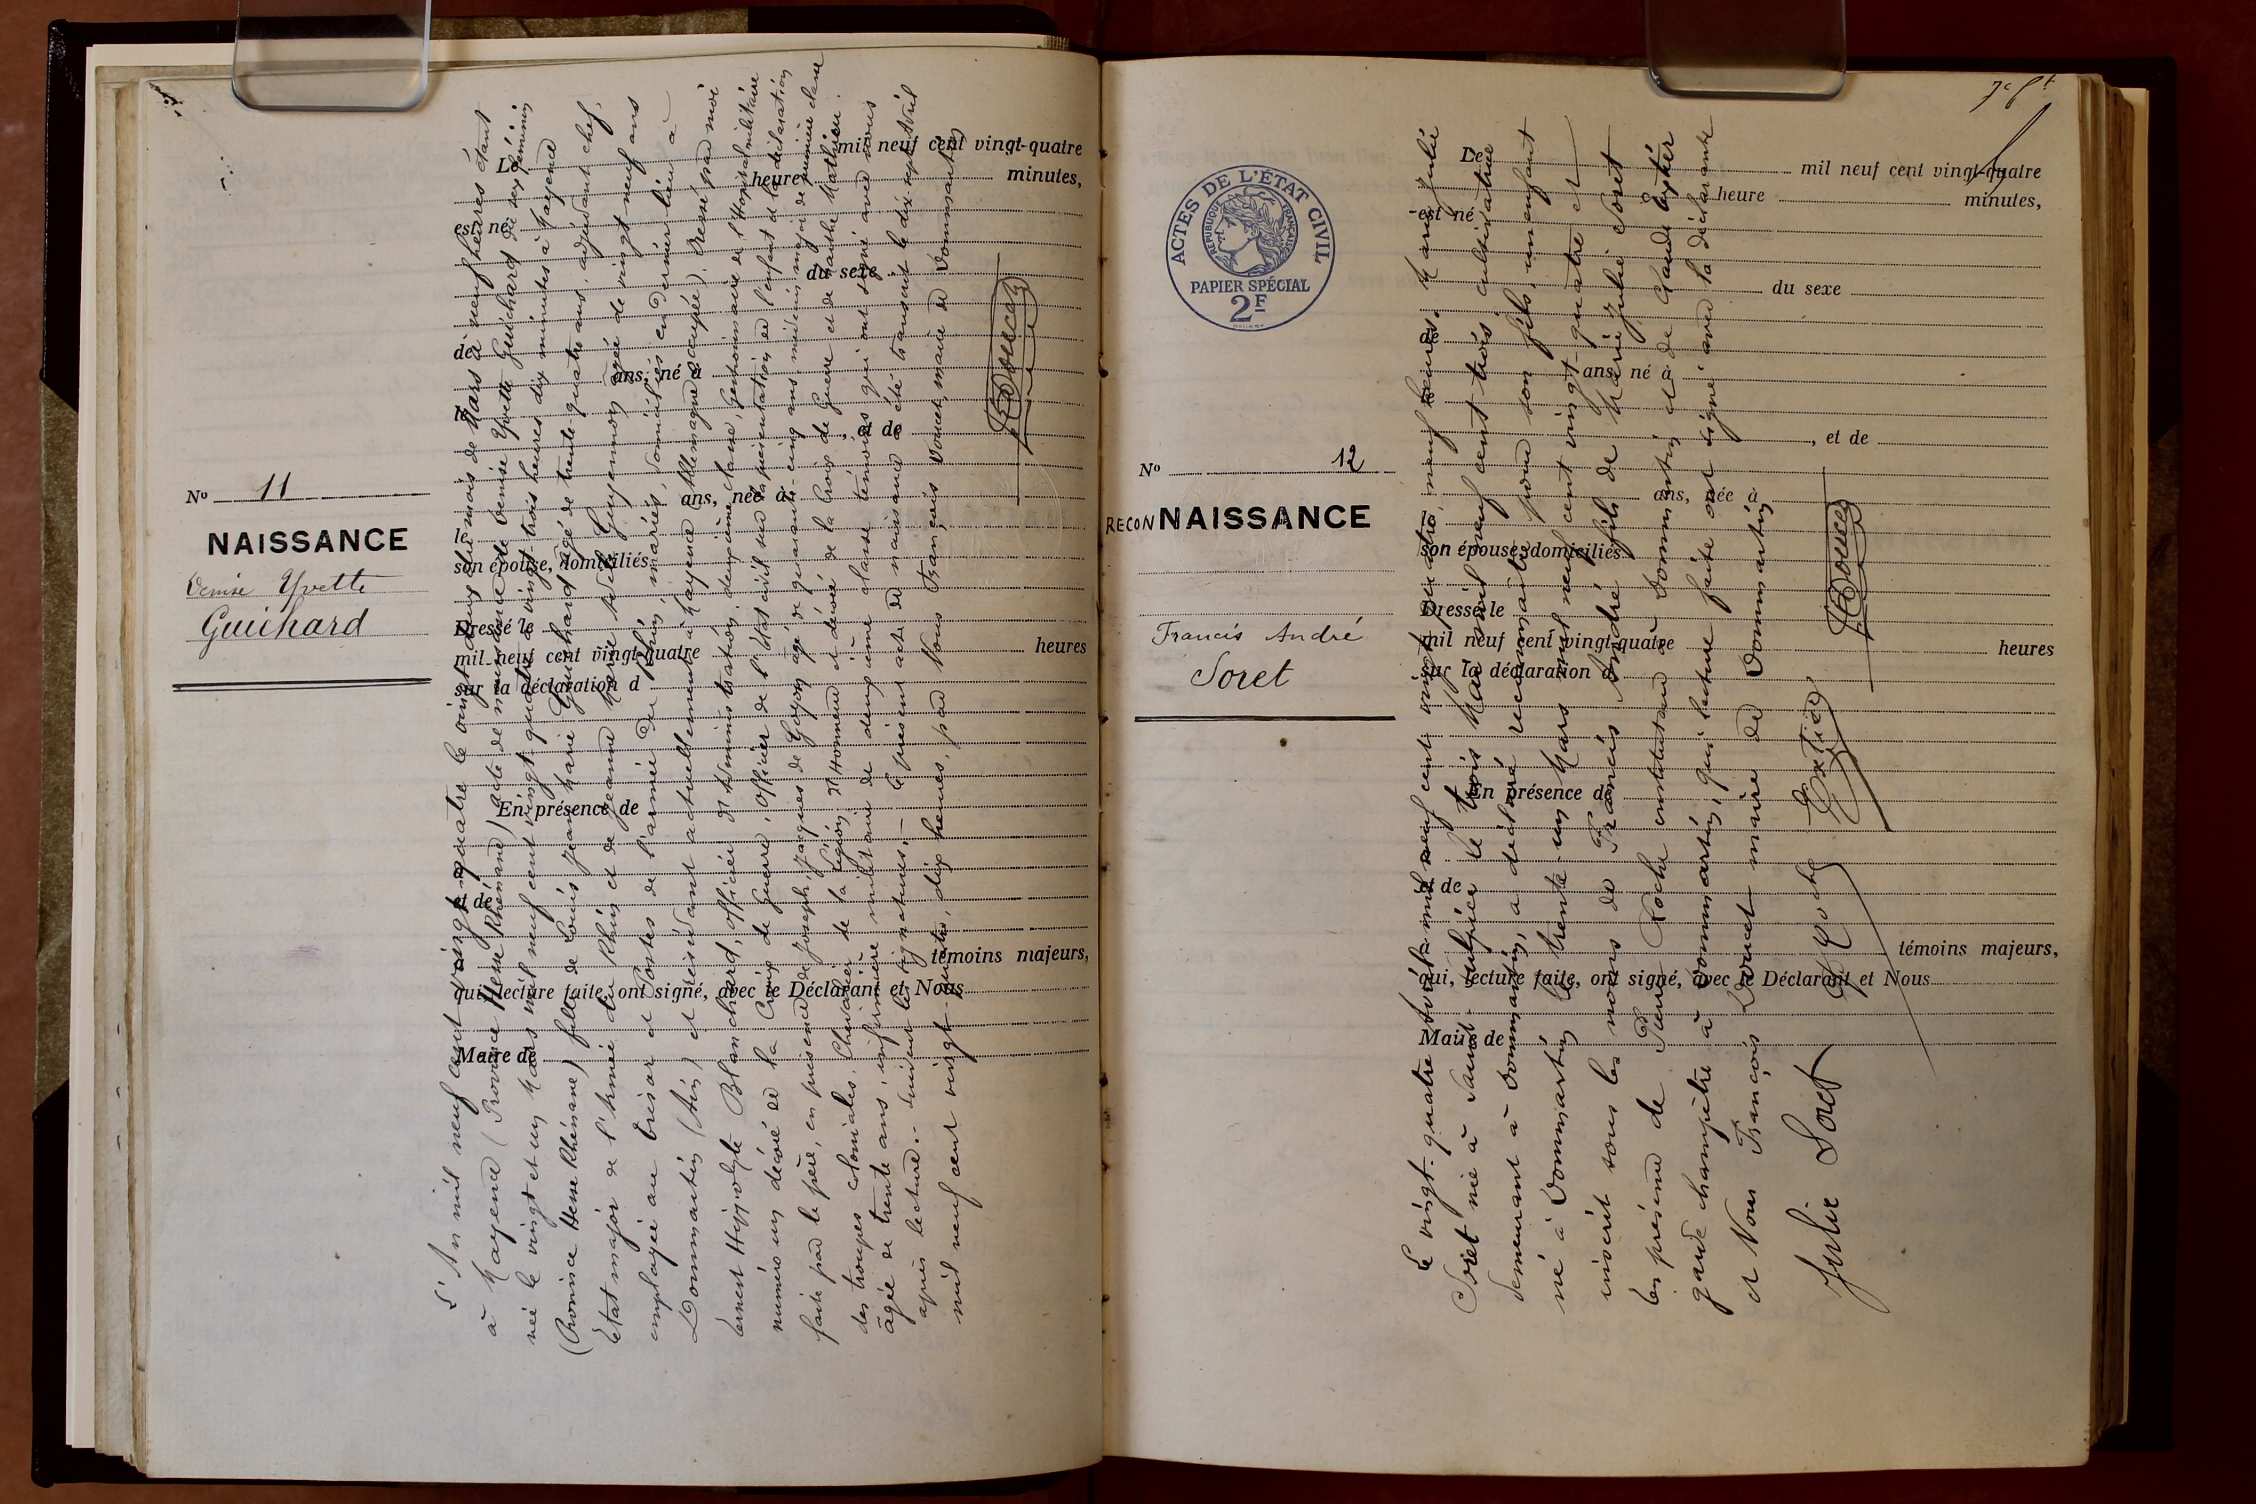 Le
mil neuf cent vingt-quatre
heure
minutes,
est né
du sexe
de
ans, né à
le
, et de
ans, née à
le
son épouse, domiciliés
Dressé le
mil neuf cent vingt-quatre
heures
sur la déclaration d
En présence de
et de
témoins majeurs,
qui, lecture faite, ont signé, avec le Déclarant et Nous
Maire de
No 11
NAISSANCE
Denise Yvette
Guichard
L'An mil neuf cent vingt quatre le vingt deux du mois de Mars à neuf heures étant
à Mayence (Province Hesse Rhénane) acte de naissance de Denise Yvette Guichard du sexe féminin
née le vingt et un Mars mil neuf cent vingt quatre à vingt trois heures dix minutes à Mayence
(Province Hesse Rhénane) fille de Louis Jean Marie Guichard âgé de trente quatre ans, adjudant chef,
Etat major de l'Armée du Rhin et de Jeanne Marie Guyennon âgée de vingt neuf ans
employée au trésor et Postes de l'armée du Rhin, mariés, domiciliés en dernier lieu à
Dommartin (Ain) et résidant actuellement à Mayence (Allemagne occupée). Dressé par moi
Ernest Hippolyte Blanchard, officier d'Administration deuxième classe, gestionnaire de l'Hôpital militaire
numéro un décoré de la Croix de Guerre, officier de l'état civil sur la présentation de l'enfant et la déclaration
faite par le père, en présence de Joseph Jacques de Goyon âgé de quarante cinq ans médecin major de première classe
des troupes coloniales, Chevalier de la Légion d'Honneur et décoré de la Croix de Guerre et de Marthe Mathieu
âgée de trente ans, infirmière militaire de deuxième classe témoins qui ont signé avec nous
après lecture. - Suivent les signatures. - Le présent acte de naissance a été transcrit le dix sept Avril
mil neuf cent vingt quatre, dix heures, par Nous François Doucet, maire de Dommartin
Doucet
7e ft
ACTES DE L'ÉTAT CIVIL
RÉPUBLIQUE FRANÇAISE
PAPIER SPÉCIAL
2F
Le
mil neuf cent vingt-quatre
heure
minutes,
est né
du sexe
de
ans, né à
, et de
ans, née à
son épouse, domiciliés
Dressé le
mil neuf cent vingt-quatre
heures
sur la déclaration d
En présence de
et de
témoins majeurs,
qui, lecture faite, ont signé, avec le Déclarant et Nous
Maire de
No 12
RECONNAISSANCE
Francis André
Soret
Le vingt-quatre Août mil neuf cent vingt quatre, neuf heures, Marie Julie
Soret née à Saint Sulpice le trois Mai mil neuf cent trois cultivatrice
demeurant à Dommartin, a déclaré reconnaître pour son fils, un enfant
né à Dommartin le trente un Mars mil neuf cent vingt quatre et
inscrit sous les noms de Francis André fils de Marie Julie Soret
En présence de Pierre Roche instituteur à Dommartin et de Claude
garde champêtre à Dommartin, qui lecture faite ont signé avec la déclarante
et Nous François Doucet maire de Dommartin
Julie Soret
Roche
Doucet